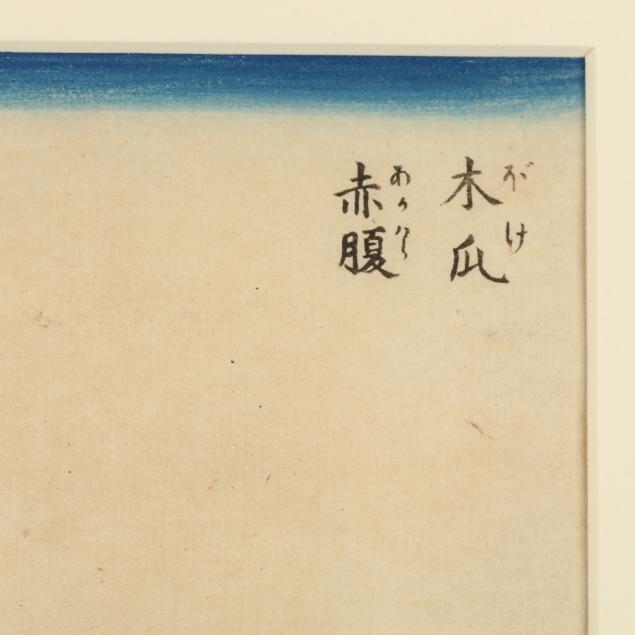 木瓜
ぼけ
赤腹
あかはら